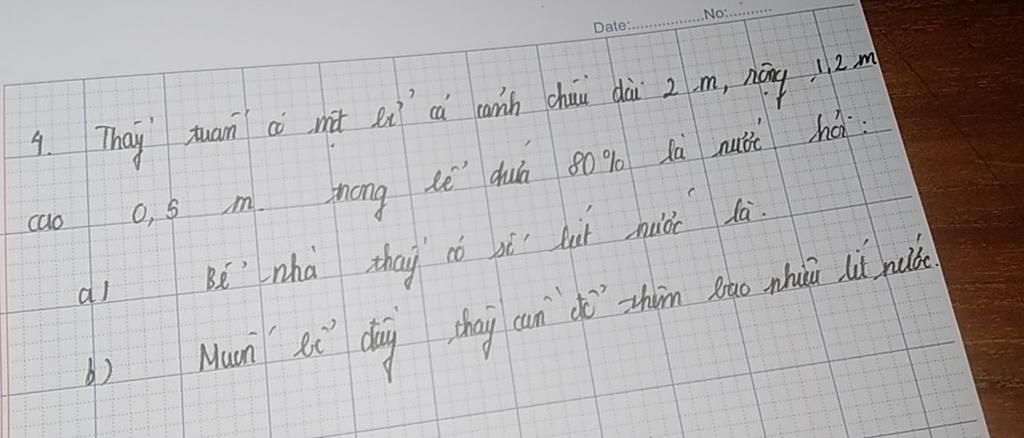 Date:..................No:..........
4. Thầy tuấn có một bể cá cảnh chiều dài 2 m, rộng 1,2 m
cao 0,5 m trong bể chứa 80% là nước hỏi:
a) Bể nhà thầy có số lít nước là.
b) Muốn bể đầy thầy cần đổ thêm bao nhiêu lít nước.